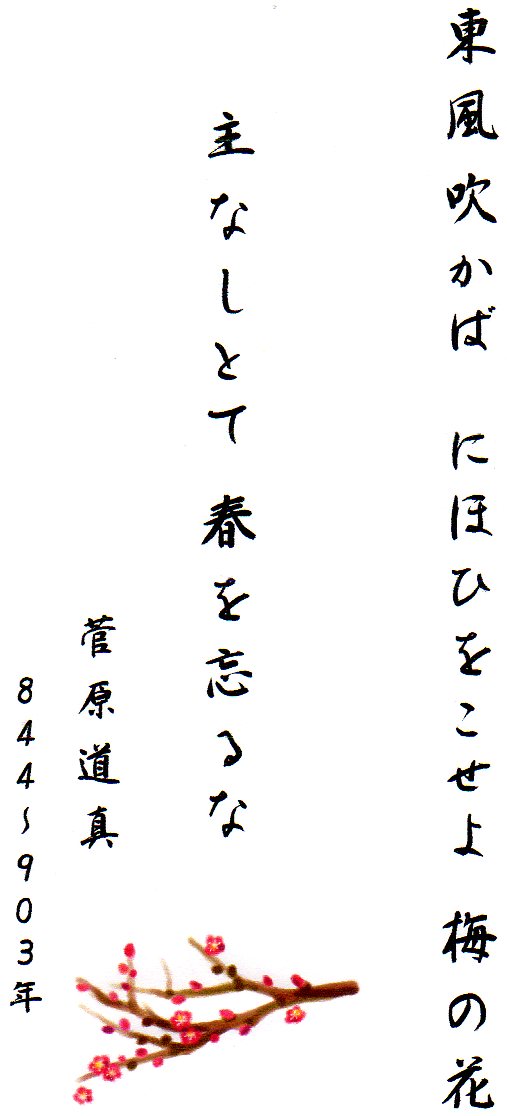 東風吹かば にほひをこせよ 梅の花
主なしとて 春を忘るな
菅原道真
844~903年